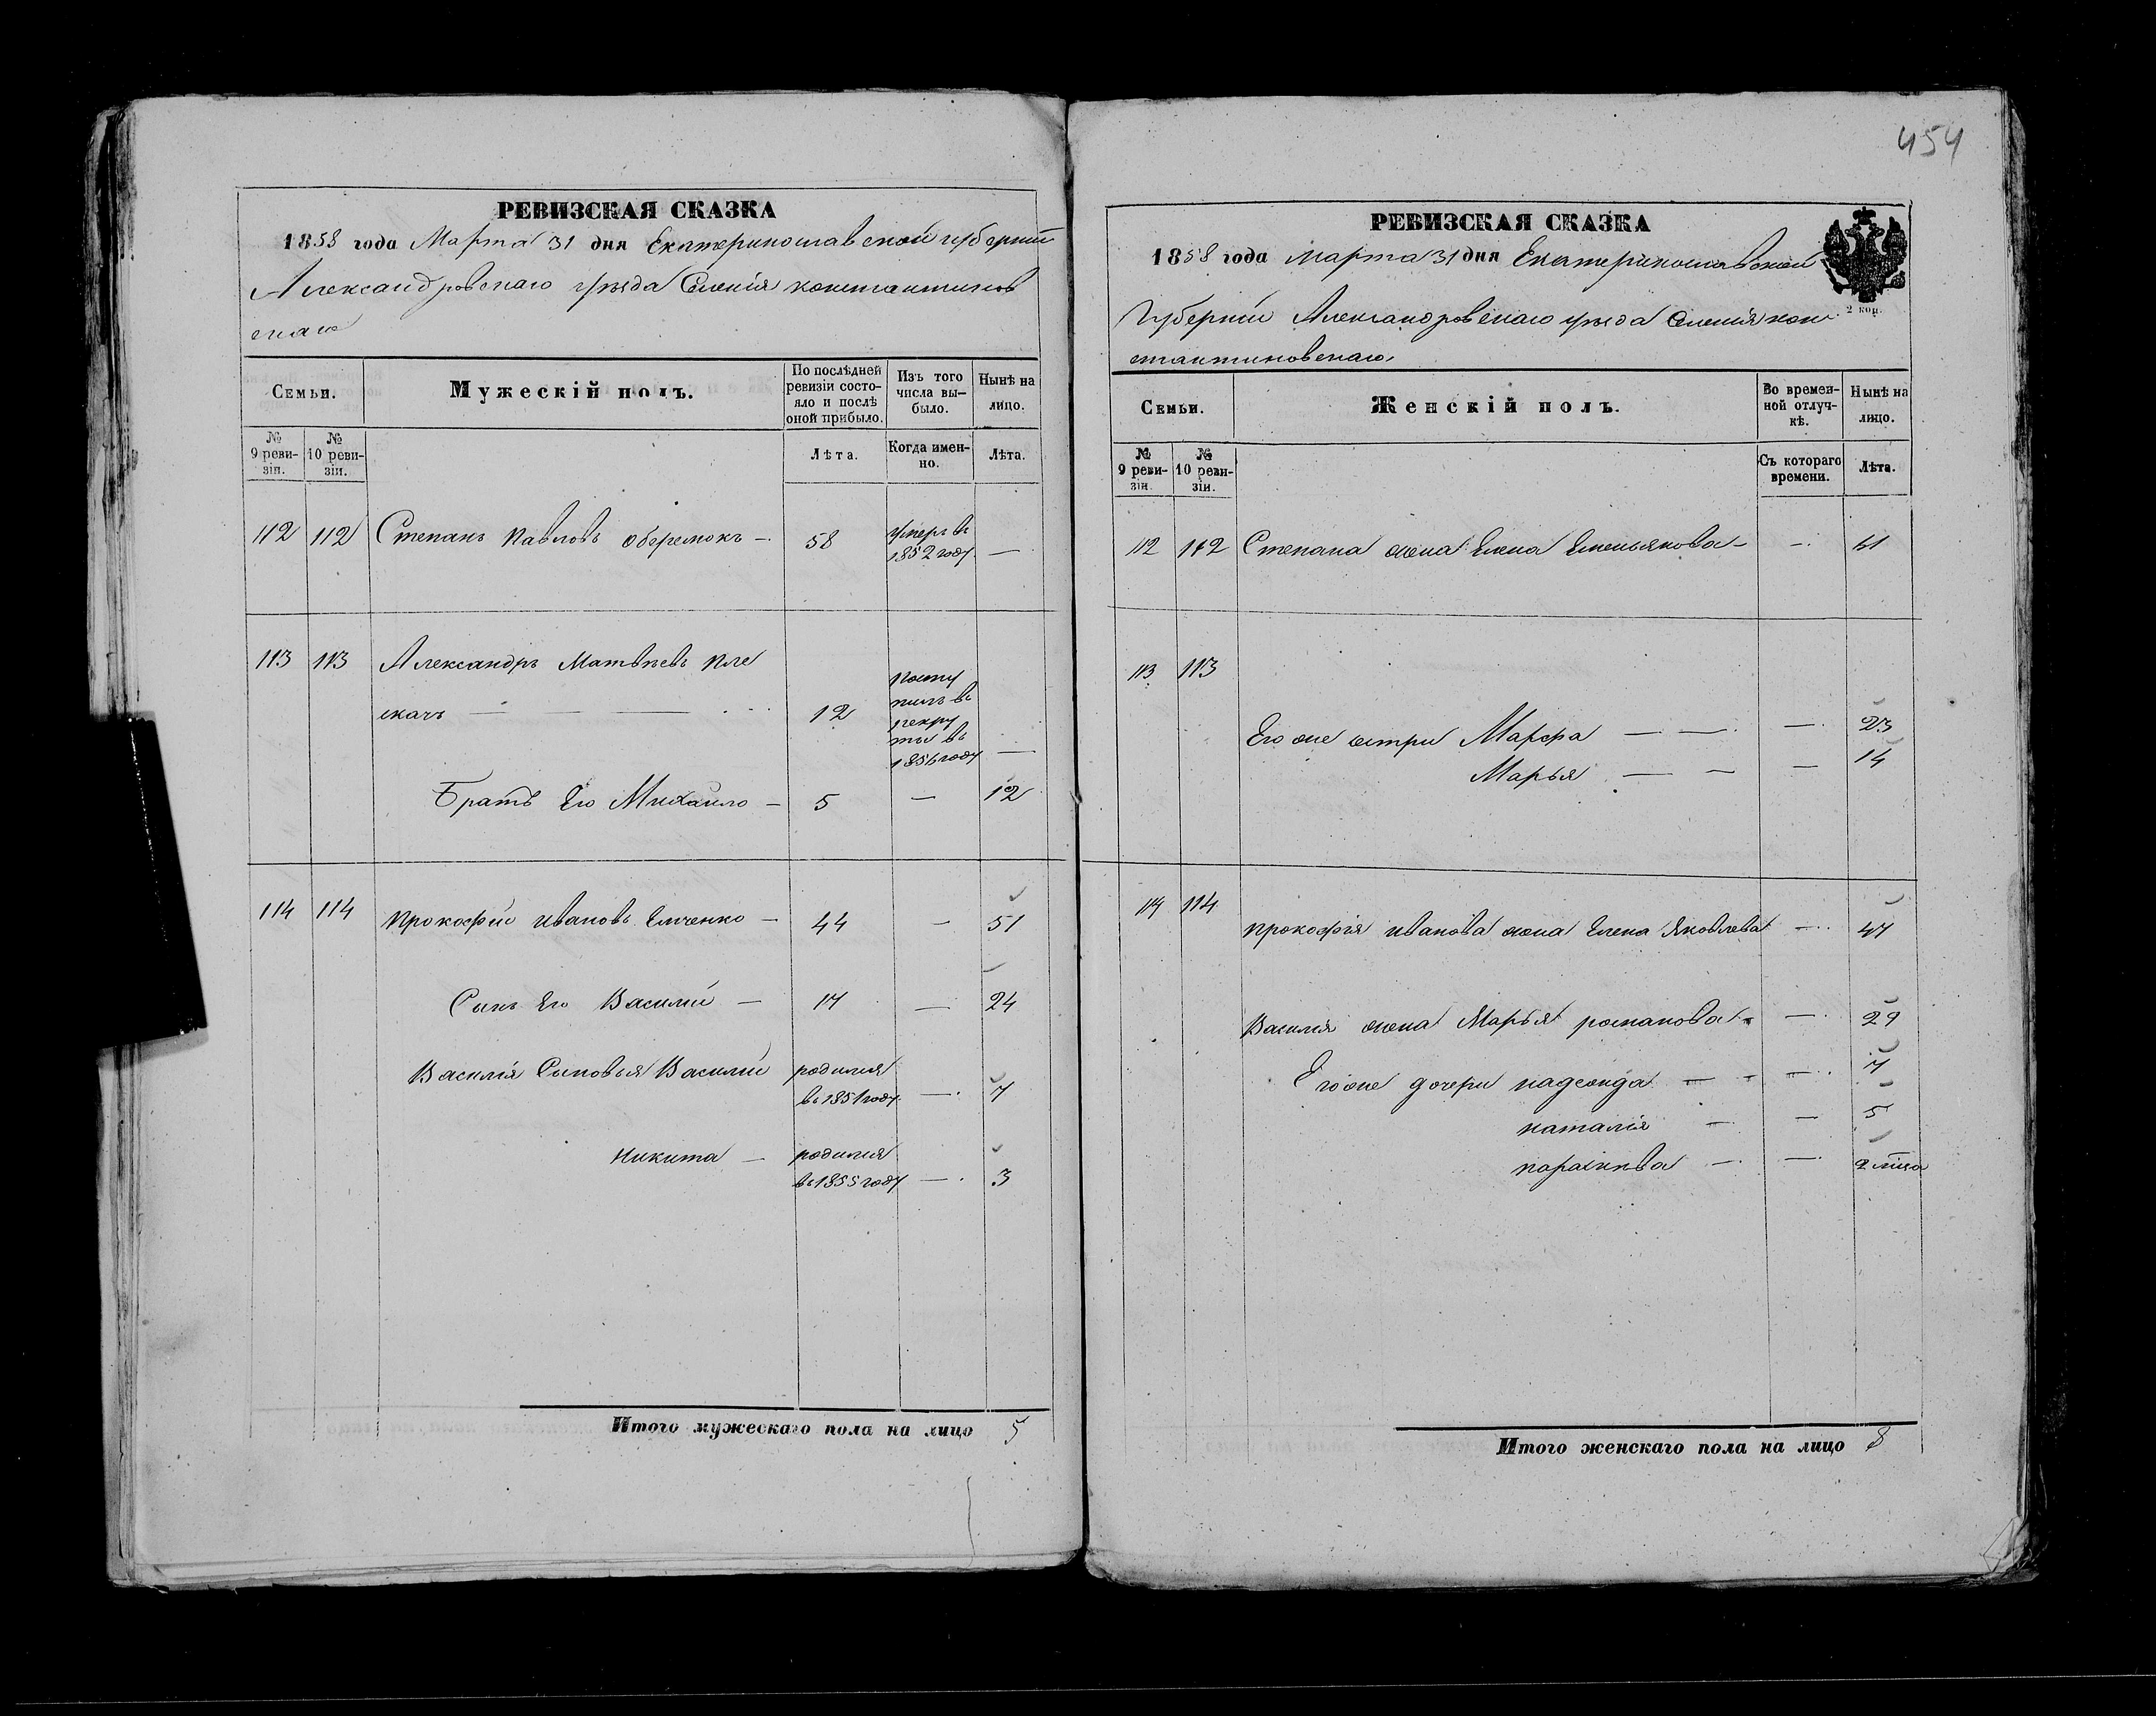 454
РЕВИЗСКАЯ СКАЗКА
1858 года Марта 31 дня Екатеринославской губерніи
Александровскаго уѣзда Селенія константинов
скаго
Семьи.
Мужескій полъ.
По послѣдней ревизіи состояло и послѣ оной прибыло.
Изъ того числа выбыло.
Нынѣ на лицо.
№ 9 ревизіи.
№ 10 ревизіи.
Лѣта.
Когда именно.
Лѣта.
112 112 Степанъ Павловъ Оберемокъ — 58 умеръ въ 1852 году —
113 113 Александръ Матвѣевъ Пле
скачъ — — — 12 посту
пилъ въ
рекру
ты въ
1856 году —
Братъ Его Михайло — 5 — 12
114 114 Прокофій Ивановъ Емченко — 44 — 51
Сынъ Его Василій — 17 — 24
Василія Сыновья Василій родился
въ 1851 году — 7
Никита — родился
въ 1855 году — 3
Итого мужескаго пола на лицо 5
РЕВИЗСКАЯ СКАЗКА
1858 года марта 31 дня Екатеринославской
Губерніи Александровскаго уѣзда Селенія кон
стантиновскаго
2 коп.
Семьи.
Женскій полъ.
Во временной отлучкѣ.
Нынѣ на лицо.
№ 9 ревизіи.
№ 10 ревизіи.
Съ котораго времени.
Лѣта.
112 112 Степана жена Елена Емельянова — — 61
113 113
Его же сестри Марфа — — — 23
Марья — — — 14
114 114
Прокофія Иванова жена Елена Яковлева — 47
Василія жена Марья романова — — 29
Его же дочери надежда — — — 7
наталія — — 5
парасковья — — 2 мѣсца
Итого женскаго пола на лицо 8